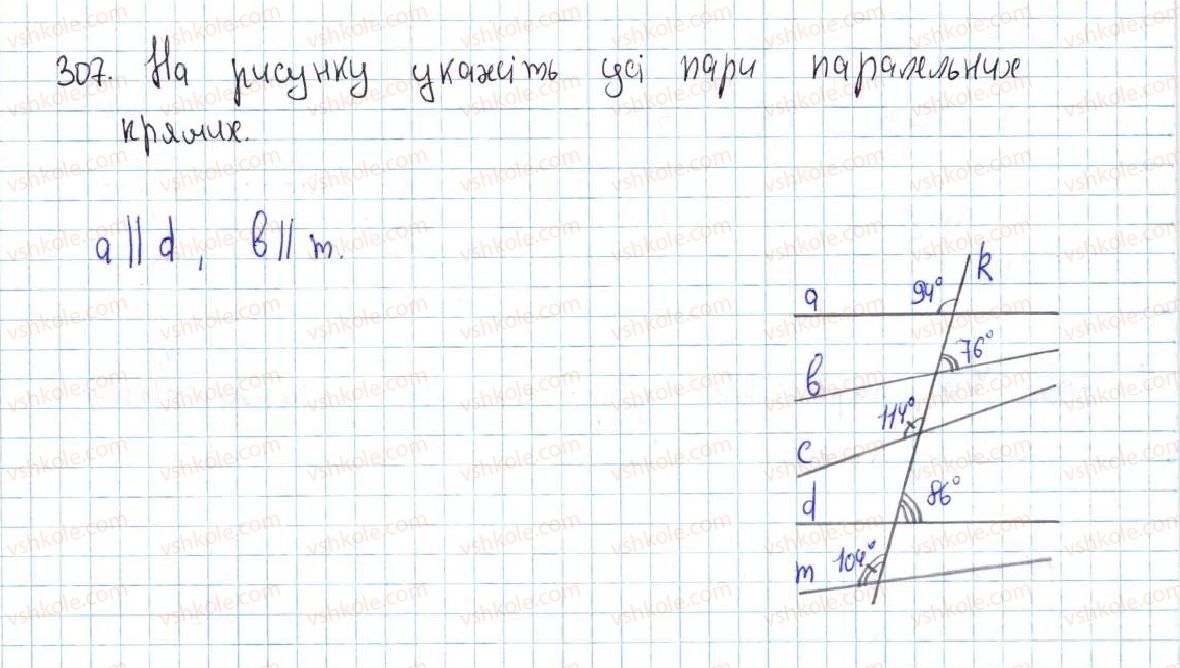 307. На рисунку укажіть усі пари паралельних
прямих.
a || d, b || m.
k
94°
a
76°
b
114°
c
86°
d
104°
m
vshkole.com